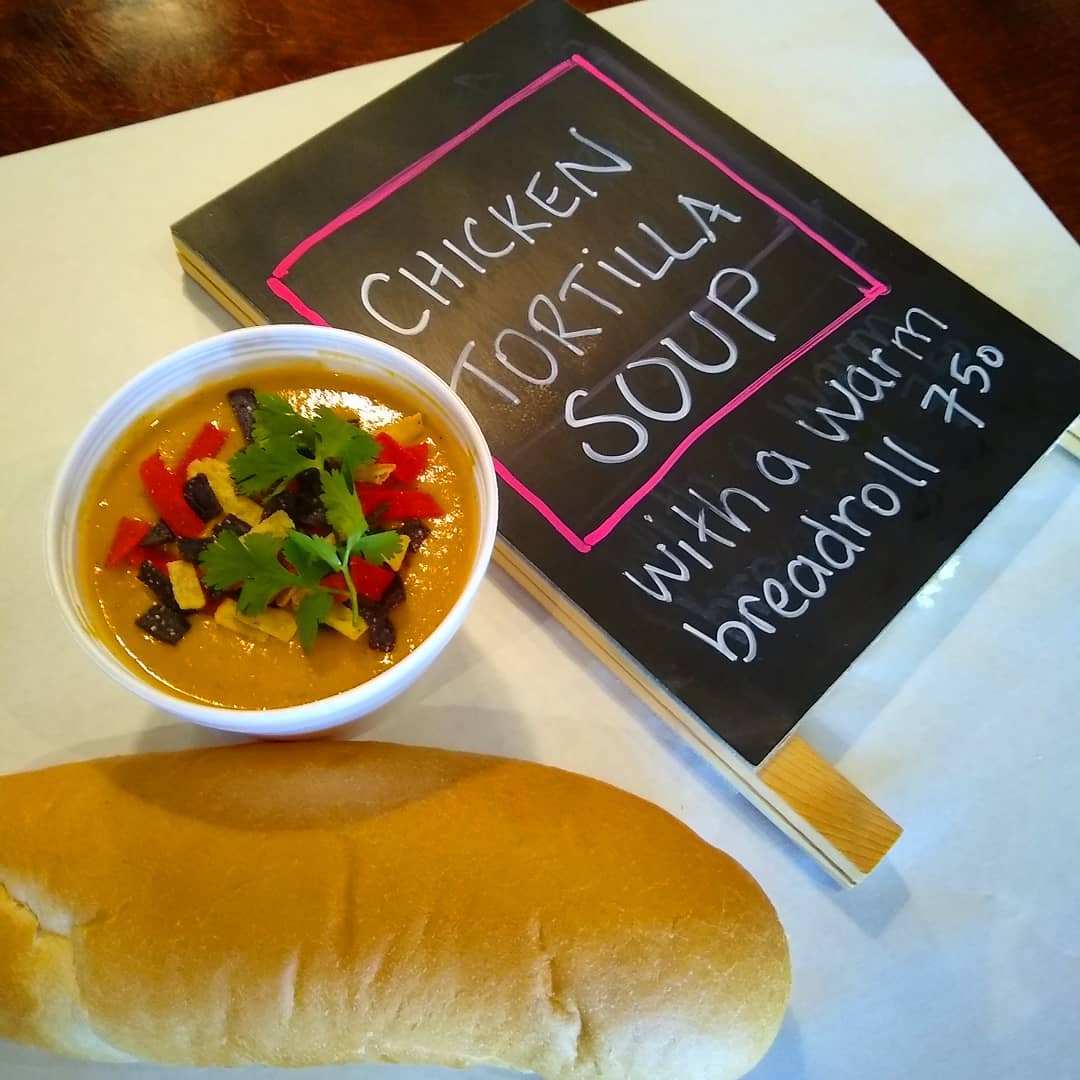 CHICKEN
TORTiLLA
SOUP
with a warm
breadroll 750